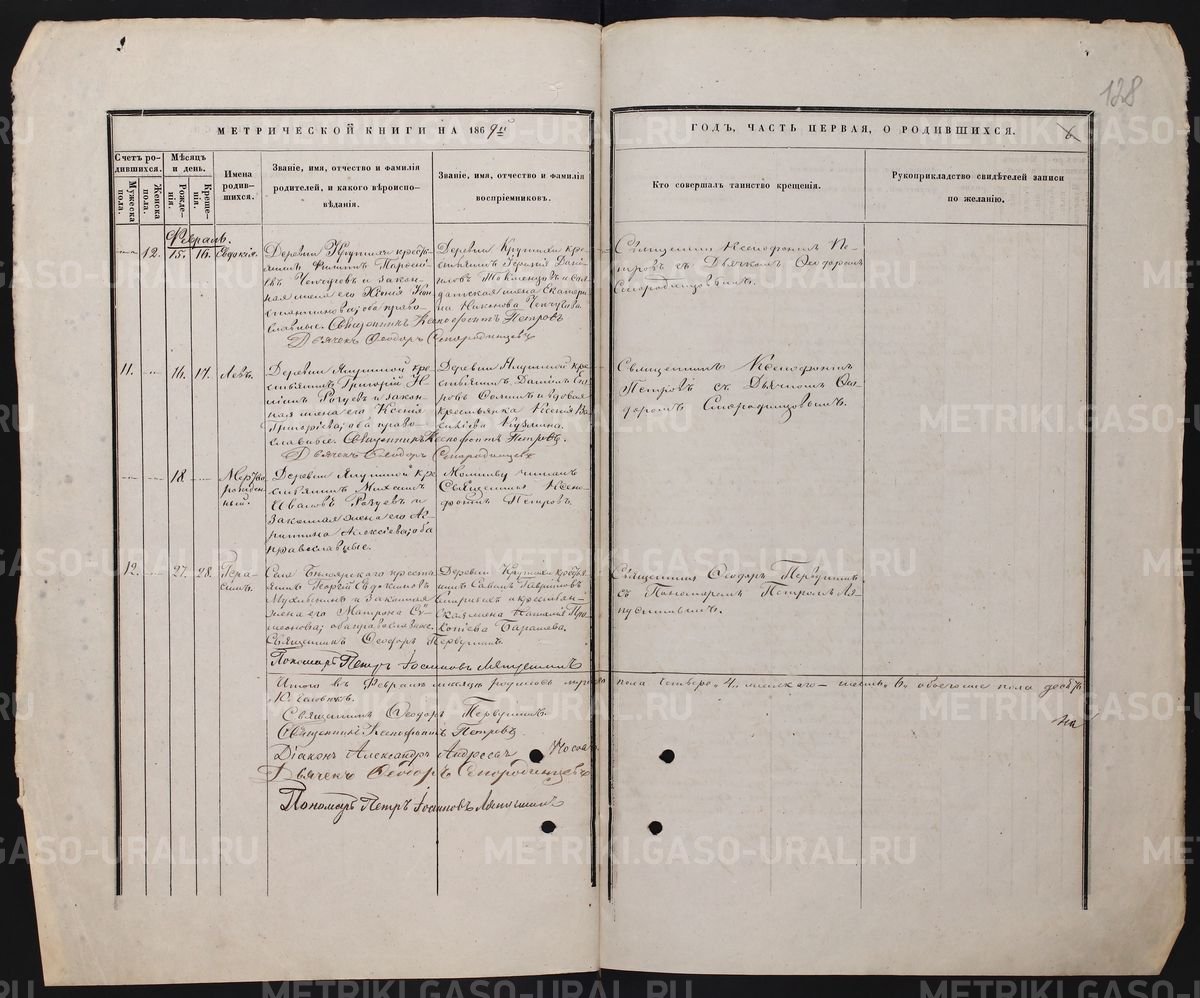 128
МЕТРИЧЕСКОЙ КНИГИ НА 1869й
ГОДЪ, ЧАСТЬ ПЕРВАЯ, О РОДИВШИХСЯ.
6
Счетъ родившихся.
Мужеска пола.
Женска пола.
Мѣсяцъ и день.
Рожденія.
Крещенія.
Имена родившихся.
Званіе, имя, отчество и фамилія
родителей, и какого вѣроиспо-
вѣданія.
Званіе, имя, отчество и фамилія
воспріемниковъ.
Кто совершалъ таинство крещенія.
Рукоприкладство свидѣтелей записи
по желанію.
Февраль.
12. 15. 16. Евдокія.
Деревни Крутихи кресть-
янинъ Филипъ
и закон-
ная жена его Ксенія Кон-
стантинова; оба право-
славные. Священникъ Ксенофонтъ Петровъ
Дьячекъ Ѳеодоръ Смородинцевъ
Деревни Крутихи кре-
стьянинъ Дани-
ловъ и сол-
датская жена Екатери-
на Никонова
Священникъ Ксенофонтъ Пе-
тровъ съ Дьячкомъ Ѳеодоромъ
Смородинцовымъ.
11. 16. 17. Левъ.
Деревни кре-
стьянинъ Григорій
и закон-
ная жена его Ксенія
Григорьева; оба право-
славные. Священникъ Ксенофонтъ Петровъ.
Дьячекъ Ѳеодоръ Смородинцевъ
Деревни кре-
стьянинъ Даніилъ
и вдовая
крестьянка Ксенія Ва-
сильева Кузмина.
Священникъ Ксенофонтъ
Петровъ съ Дьячкомъ Ѳео-
доромъ Смородинцовымъ.
18 Мертво-
рожден-
ный.
Деревни кре-
стьянинъ Михаилъ
Ивановъ и
Законная жена его Аг-
рипина Алексіева; оба
православные.
Молитву читалъ
Священникъ Ксено-
фонтъ Петровъ.
12. 27. 28. Гера-
симъ.
Села Бѣлоярского кресть-
янинъ Георгій Евдокимовъ
и Законная
жена его Матрона Си-
меонова; оба православные.
Священникъ Ѳеодоръ Первушинъ.
Пономарь Петръ Іоанновъ Ляпустинъ
Деревни Крутихи крестья-
нинъ Савва Гавриловъ
и крестьян-
ская жена Наталія Про-
копіева Барашева.
Священникъ Ѳеодоръ Первушинъ
съ Пономаремъ Петромъ Ля-
пустинымъ.
Итого въ Февралѣ мѣсяцѣ родилось мужеска пола четверо, 4. женскаго – шесть, 6. обоего пола десять
человѣкъ.
Священникъ Ѳеодоръ Первушинъ
Священникъ Ксенофонтъ Петровъ
Діаконъ Александръ Андреевъ
Дьячекъ Ѳеодоръ Смородинцевъ
Пономарь Петръ Іоанновъ Ляпустинъ
METRIKI.GASO-URAL.RU